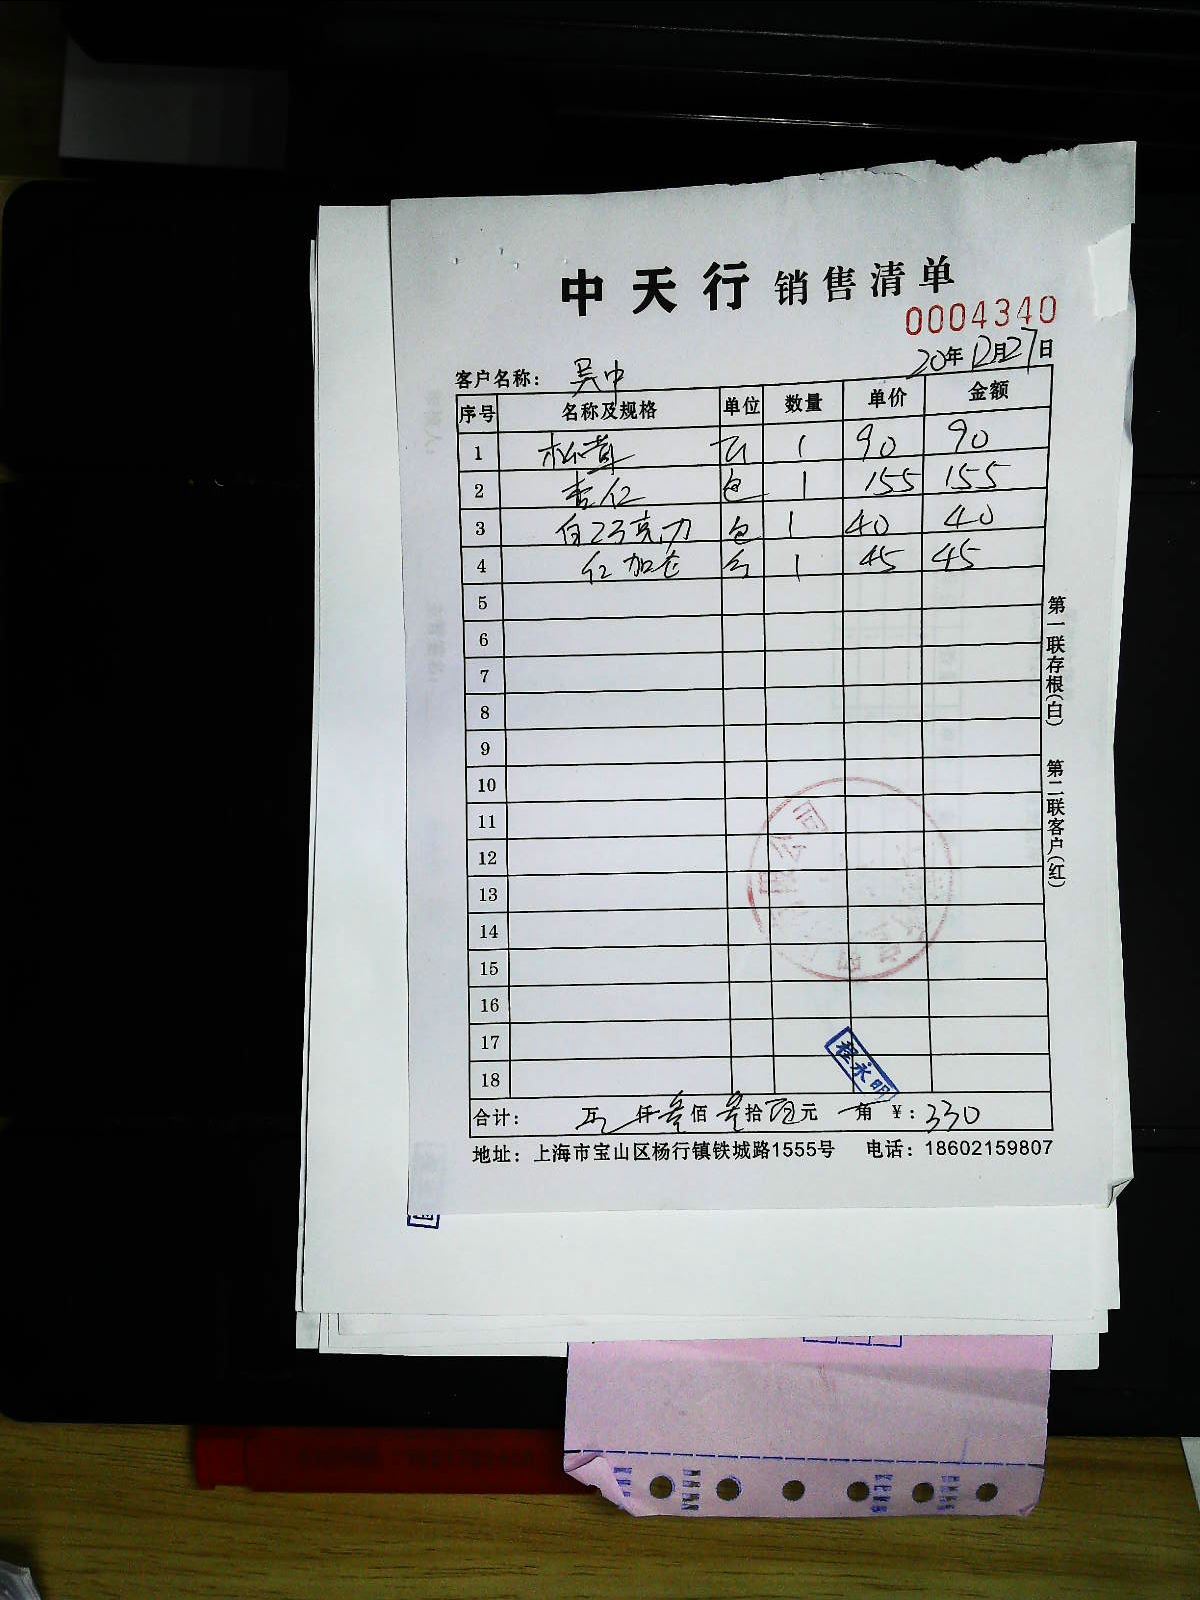 中天行 销售清单
0004340
20年12月27日
客户名称： 吴中
序号 名称及规格 单位 数量 单价 金额
1 松茸 1 90 90
2 杏仁 包 1 155 155
3 白巧克力 包 1 40 40
4 红加仑 1 45 45
5
6
7
8
9
10
11
12
13
14
15
16
17
18
程永明
合计： 仟叁佰叁拾元 角 ¥：330
地址：上海市宝山区杨行镇铁城路1555号 电话：18602159807
第一联存根(白) 第二联客户(红)